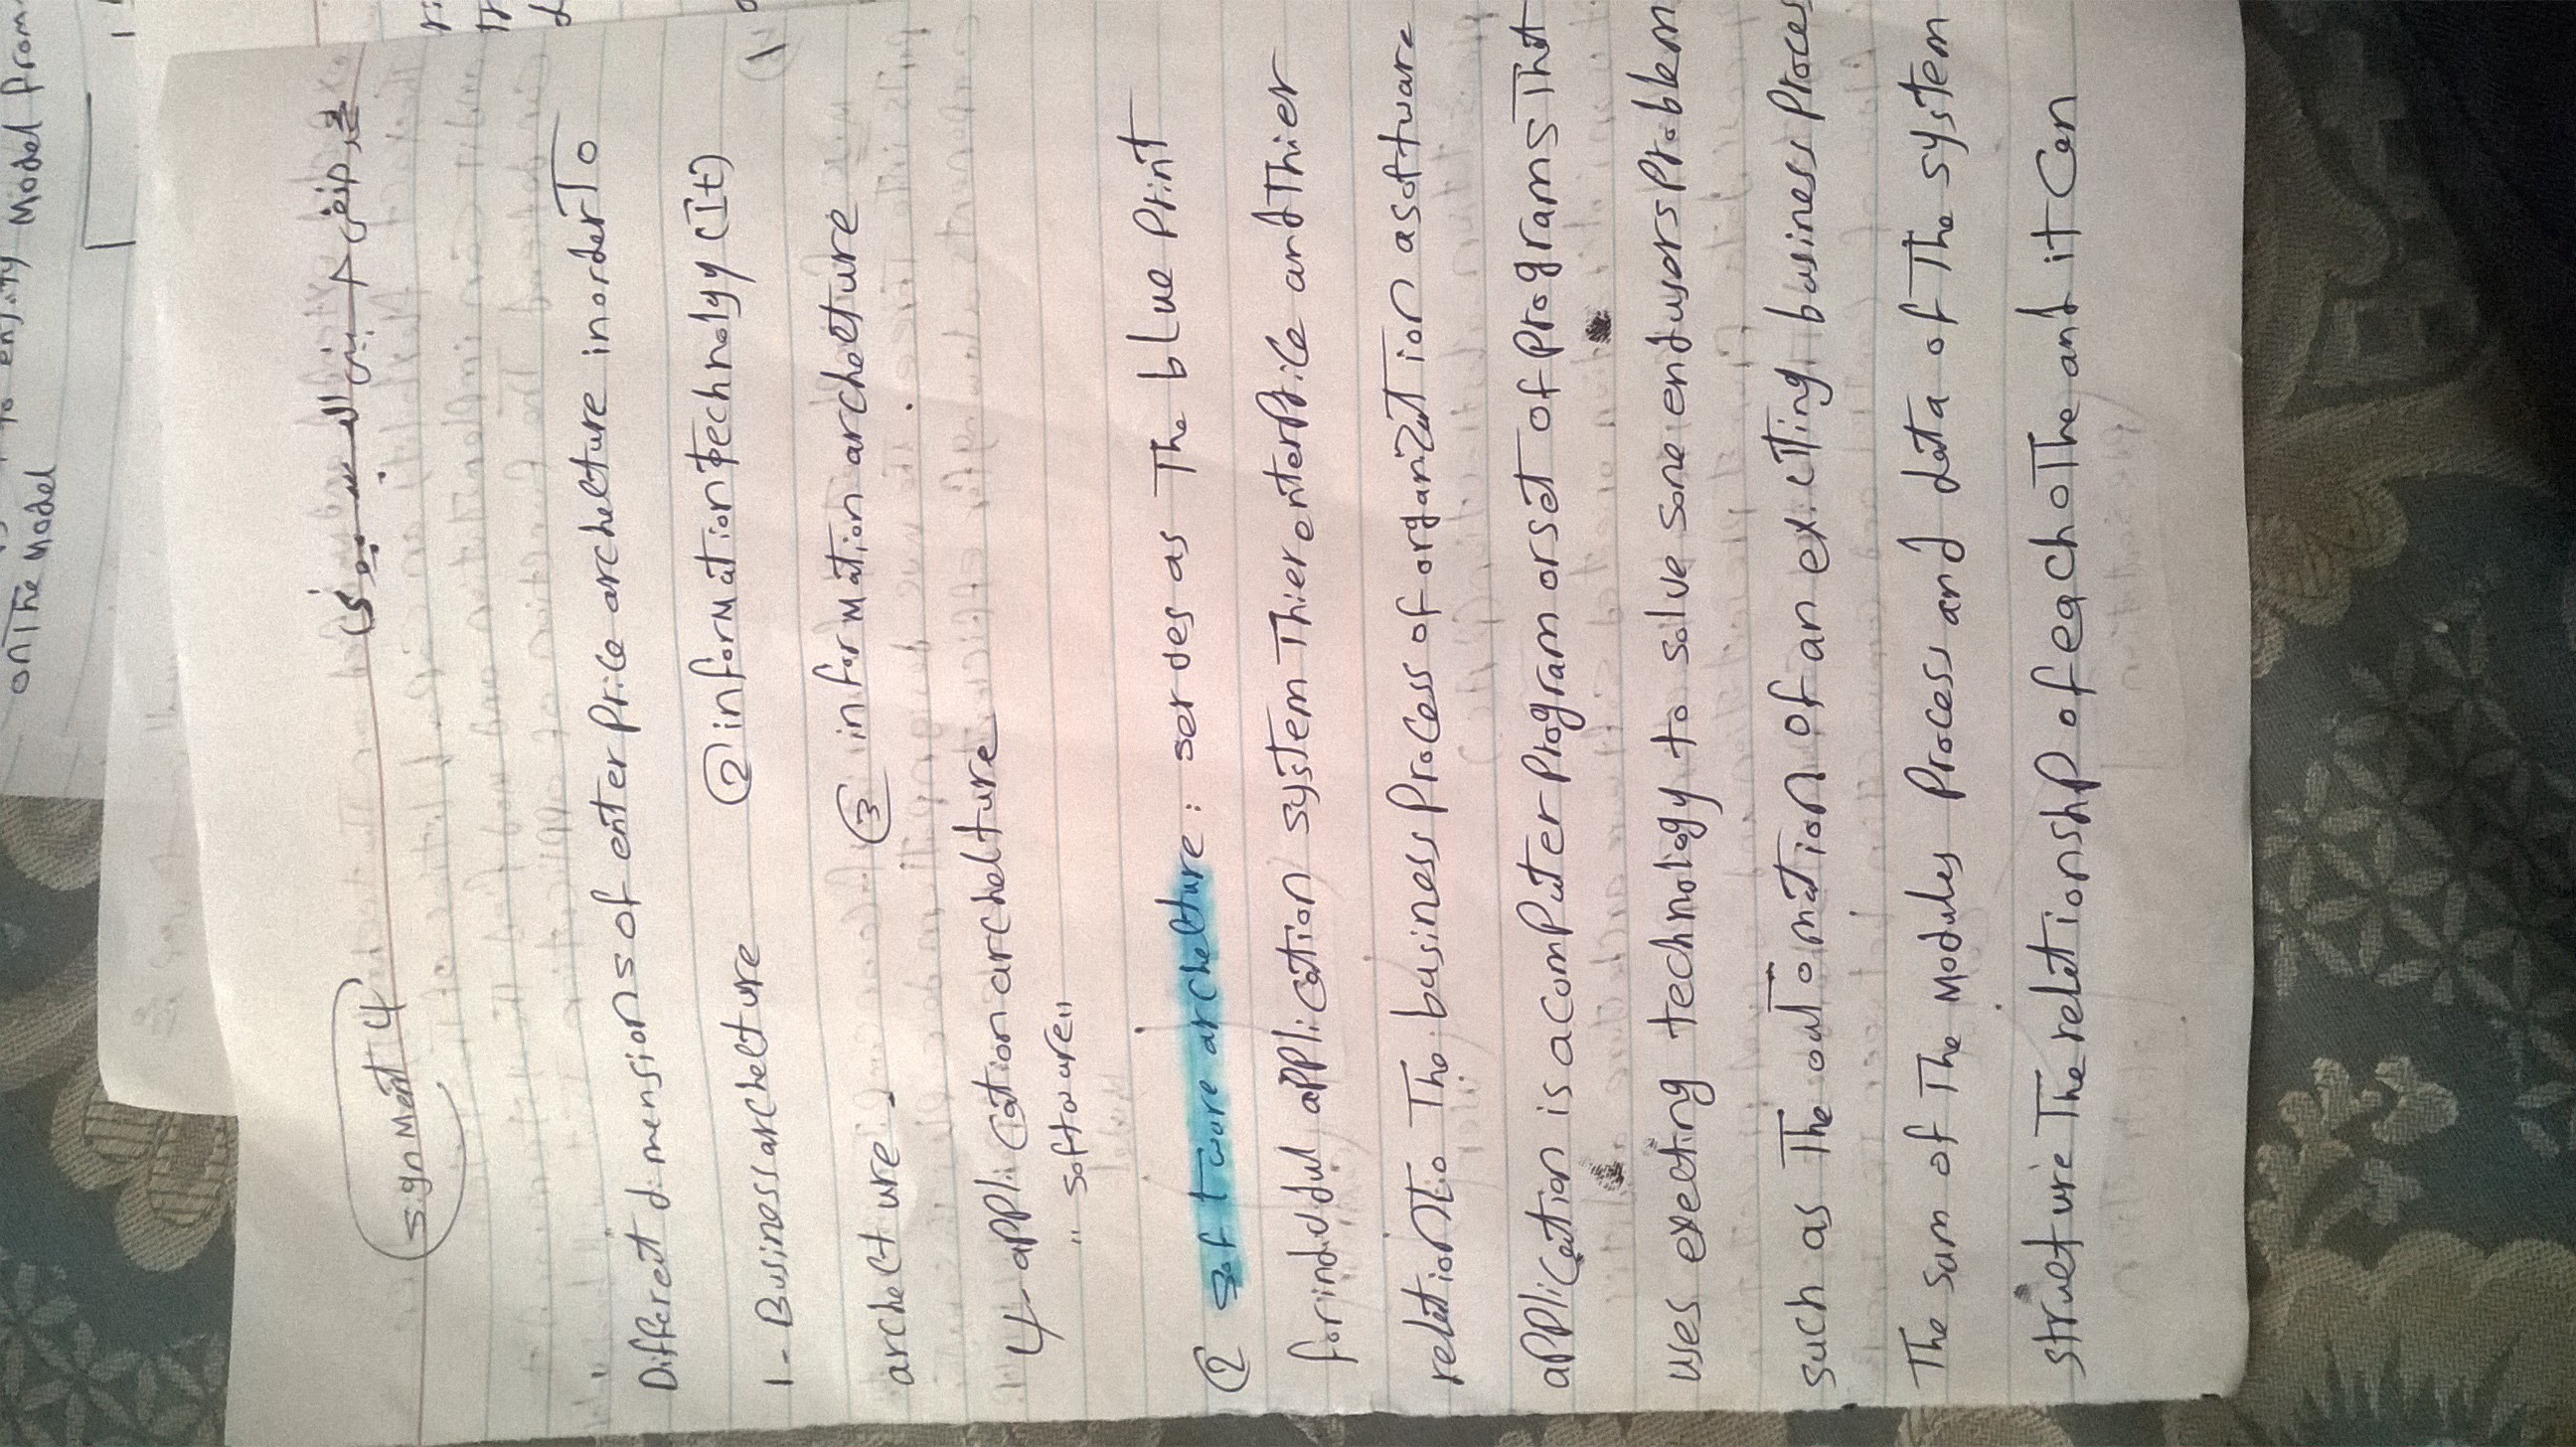 to enjoty Model from
on The Model
محمد حنفى حسينى البسيونى
signment 4
Different dimensions of enterprice archelture in order To
1- Business archelture ② information technolgy (It)
archelture - ③ information archelture
4- application archelture
" software "
② software archelture : serves as The blue Print
for individul application system Thier enterprice and Thier
relation to The business Process of organization a software
application is a computer Program or set of Programs That
uses execting technology to solve some end users Problem
such as The automation of an exciting business Proces
The sum of The Modules Process and data of The system
structure The relationshp of each othe and it can